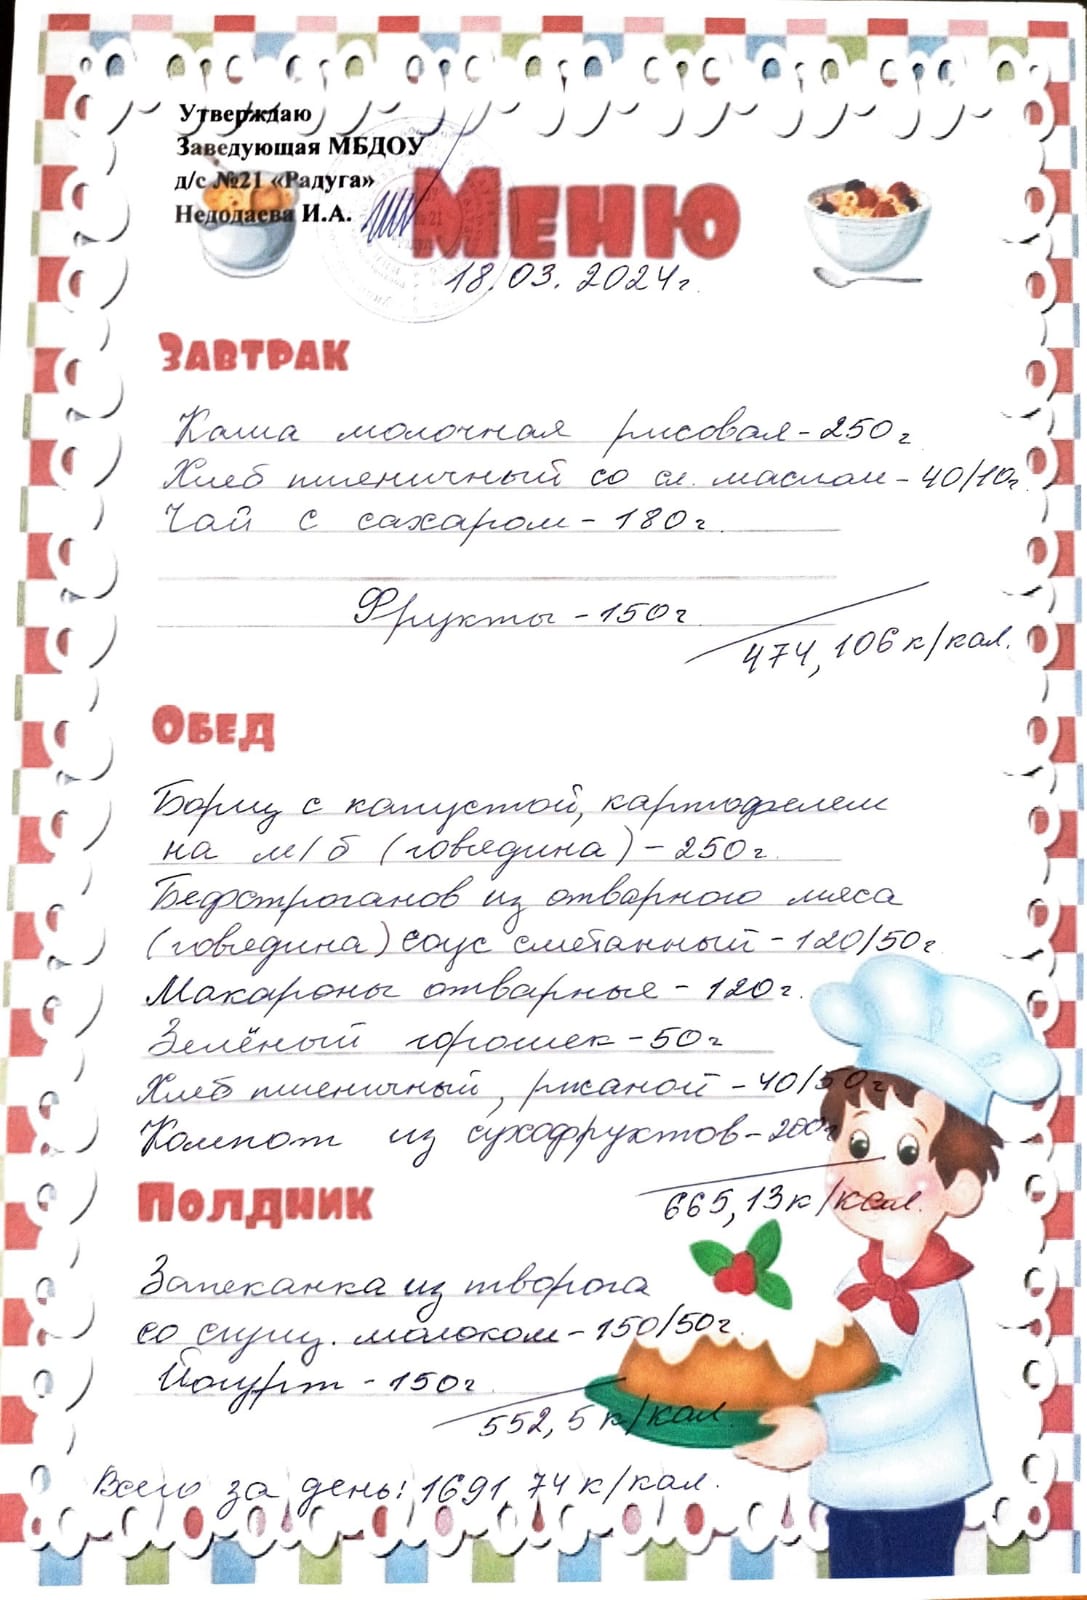 Утверждаю
Заведующая МБДОУ
д/с №21 «Радуга»
Недодаева И.А.
Меню
18.03.2024г.
Завтрак
Каша молочная рисовая - 250г
Хлеб пшеничный со сл. маслом - 40/10г.
Чай с сахаром - 180г.
Фрукты - 150г
474,106 к/кал.
Обед
Борщ с капустой, картофелем
на м/б (говядина) - 250г.
Бефстроганов из отварного мяса
(говядина) соус сметанный - 120/50г.
Макароны отварные - 120г.
Зелёный горошек - 50г
Хлеб пшеничный, ржаной - 40/50г
Компот из сухофруктов - 200г
665,13 к/кал.
Полдник
Запеканка из творога
со сгущ. молоком - 150/50г.
Йогурт - 150г
552,5 к/кал
Всего за день: 1691 74 к/кал.